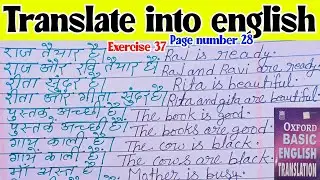 Translate into english
Exercise 37 Page number 28
राज तैयार है। Raj is ready.
राज और रवि तैयार हैं। Raj and Ravi are ready.
रीता सुंदर है। Rita is beautiful.
रीता और गीता सुंदर हैं। Rita and gita are beautiful.
पुस्तक अच्छी है। The book is good.
पुस्तकें अच्छी हैं। The books are good.
गाय काली है। The cow is black.
गायें काली हैं। The cows are black.
माँ व्यस्त है। Mother is busy.
OXFORD
BASIC
ENGLISH
TRANSLATION